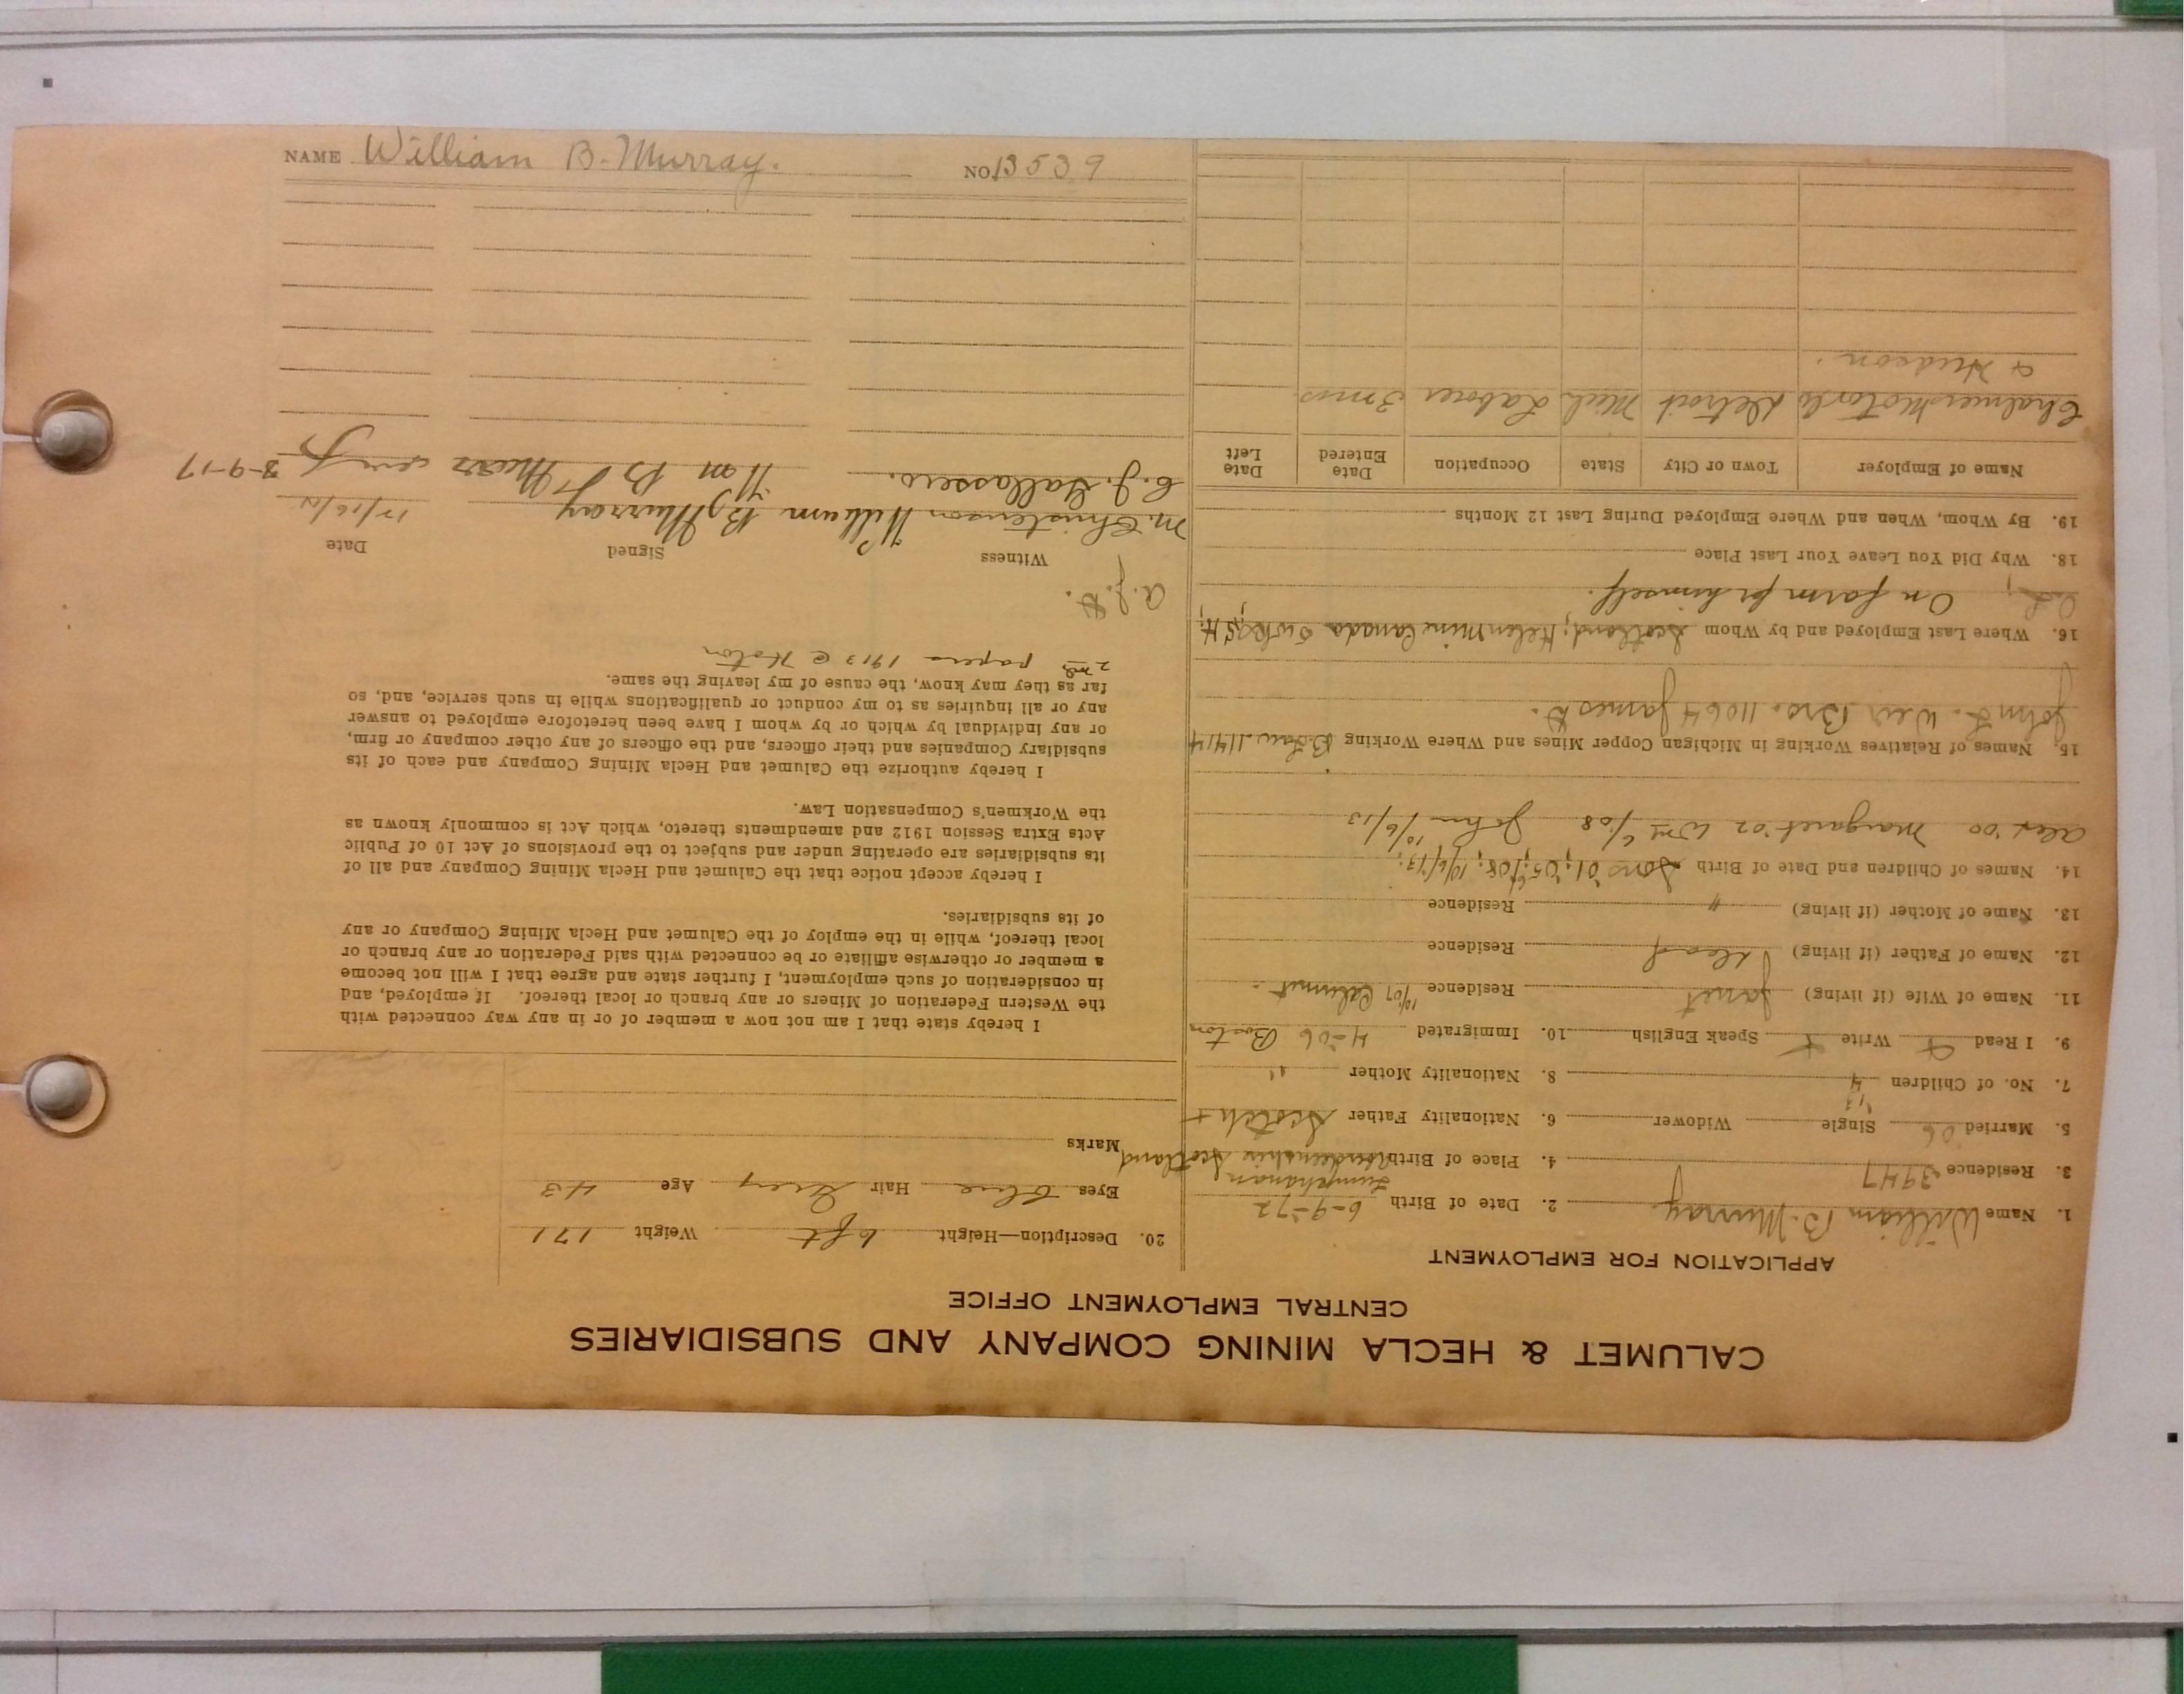 CALUMET & HECLA MINING COMPANY AND SUBSIDIARIES
CENTRAL EMPLOYMENT OFFICE
APPLICATION FOR EMPLOYMENT
1. Name William B. Murray. 2. Date of Birth 6-9-72
3. Residence 3947 4. Place of Birth Lumphanan Aberdeenshire Scotland
5. Married '06 Single Widower 6. Nationality Father Scotch +
7. No. of Children 4 8. Nationality Mother "
9. I Read + Write + Speak English 10. Immigrated 4-06 Boston
11. Name of Wife (if living) Janet Residence 10/07 Calumet
12. Name of Father (if living) Dead Residence
13. Name of Mother (if living) " Residence
14. Names of Children and Date of Birth Sons '01; '05; 6/'08; 10/6/13;
Alex '00 Margaret '02 Wm 6/08 John 10/6/13
15. Names of Relatives Working in Michigan Copper Mines and Where Working B. Law 11414
John F. Weir Bro. 11064 James D.
16. Where Last Employed and by Whom Scotland; Helen Mine Canada
On farm for himself.
18. Why Did You Leave Your Last Place
19. By Whom, When and Where Employed During Last 12 Months
Name of Employer Town or City State Occupation Date Entered Date Left
Chalmers Motor Co Detroit Mich Laborer 3 mos
& Hudson.
20. Description—Height 6 ft Weight 171
Eyes blue Hair Grey Age 43
Marks
I hereby state that I am not now a member of or in any way connected with
the Western Federation of Miners or any branch or local thereof. If employed, and
in consideration of such employment, I further state and agree that I will not become
a member or otherwise affiliate or be connected with said Federation or any branch or
local thereof, while in the employ of the Calumet and Hecla Mining Company or any
of its subsidiaries.
I hereby accept notice that the Calumet and Hecla Mining Company and all of
its subsidiaries are operating under and subject to the provisions of Act 10 of Public
Acts Extra Session 1912 and amendments thereto, which Act is commonly known as
the Workmen's Compensation Law.
I hereby authorize the Calumet and Hecla Mining Company and each of its
subsidiary Companies and their officers, and the officers of any other company or firm,
or any individual by which or by whom I have been heretofore employed to answer
any or all inquiries as to my conduct or qualifications while in such service, and, so
far as they may know, the cause of my leaving the same.
2nd papers 1913 @ Hoton
Witness Signed Date
M. Christenson William B Murray
C. J. Gallassero. Wm B Murray 3-9-17
NAME William B. Murray. NO. 13539